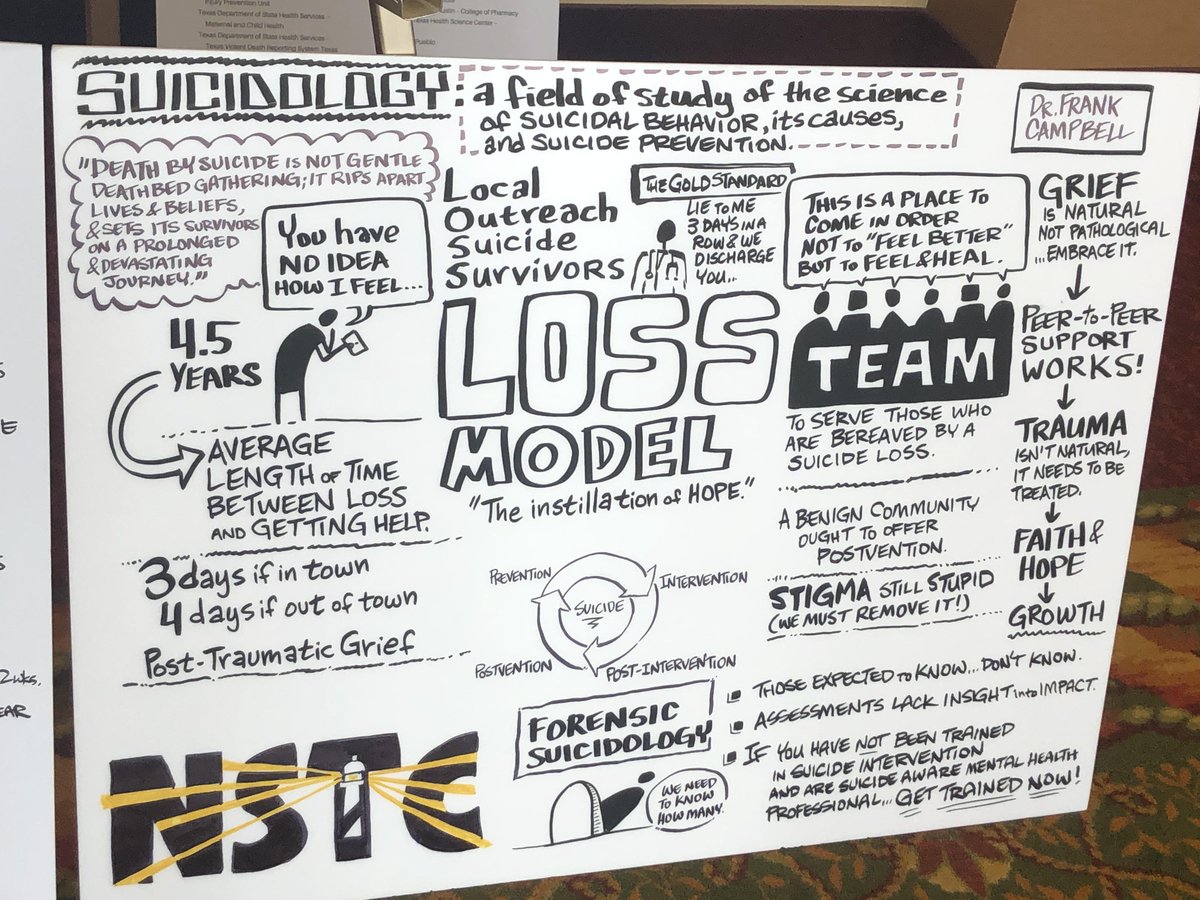 Injury Prevention Unit
Texas Department of State Health Services -
Maternal and Child Health
Texas Department of State Health Services -
Texas Violent Death Reporting System Texas
Austin - College of Pharmacy
Texas Health Science Center -
Pueblo
SUICIDOLOGY:
a field of study of the science
of SUICIDAL BEHAVIOR, its causes,
and SUICIDE PREVENTION.
DR. FRANK
CAMPBELL
"DEATH BY SUICIDE IS NOT GENTLE
DEATHBED GATHERING; IT RIPS APART
LIVES & BELIEFS,
& SETS ITS SURVIVORS
ON A PROLONGED
& DEVASTATING
JOURNEY."
You have
NO IDEA
HOW I FEEL...
4.5
YEARS
AVERAGE
LENGTH OF TIME
BETWEEN LOSS
AND GETTING HELP.
3 days if in town
4 days if out of town
Post-Traumatic Grief
NSTC
Local
Outreach
Suicide
Survivors
THE GOLD STANDARD
LIE TO ME
3 DAYS IN A
ROW & WE
DISCHARGE
YOU...
LOSS
MODEL
"The instillation of HOPE."
PREVENTION
INTERVENTION
SUICIDE
POSTVENTION
POST-INTERVENTION
FORENSIC
SUICIDOLOGY
WE NEED
TO KNOW
HOW MANY.
THIS IS A PLACE TO
COME IN ORDER
NOT TO "FEEL BETTER"
BUT TO FEEL & HEAL.
TEAM
TO SERVE THOSE WHO
ARE BEREAVED BY A
SUICIDE LOSS.
A BENIGN COMMUNITY
OUGHT TO OFFER
POSTVENTION.
STIGMA STILL STUPID
(WE MUST REMOVE IT!)
GRIEF
IS NATURAL
NOT PATHOLOGICAL
...EMBRACE IT.
PEER-to-PEER
SUPPORT
WORKS!
TRAUMA
ISN'T NATURAL,
IT NEEDS TO BE
TREATED.
FAITH &
HOPE
GROWTH
THOSE EXPECTED to KNOW... DON'T KNOW.
ASSESSMENTS LACK INSIGHT into IMPACT.
IF YOU HAVE NOT BEEN TRAINED
IN SUICIDE INTERVENTION
AND ARE SUICIDE AWARE MENTAL HEALTH
PROFESSIONAL... GET TRAINED NOW!
2wks.